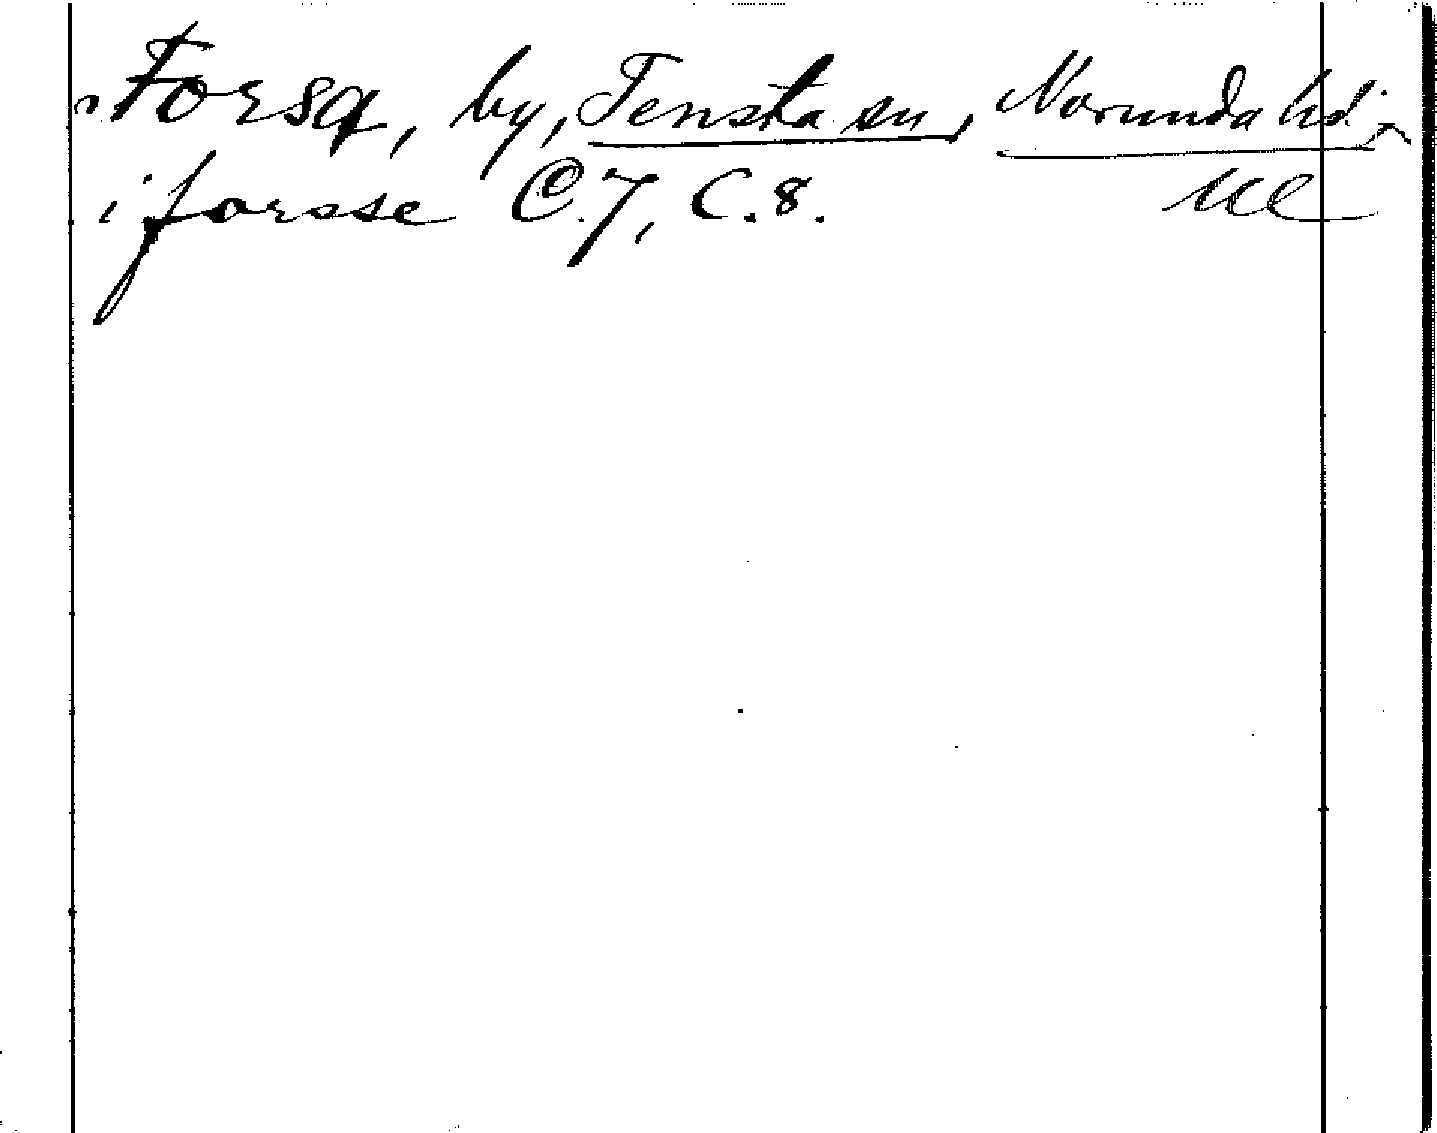 Forsa, by, Tensta sn, Norunda hd.
i forsse C.7, C.8. Ul